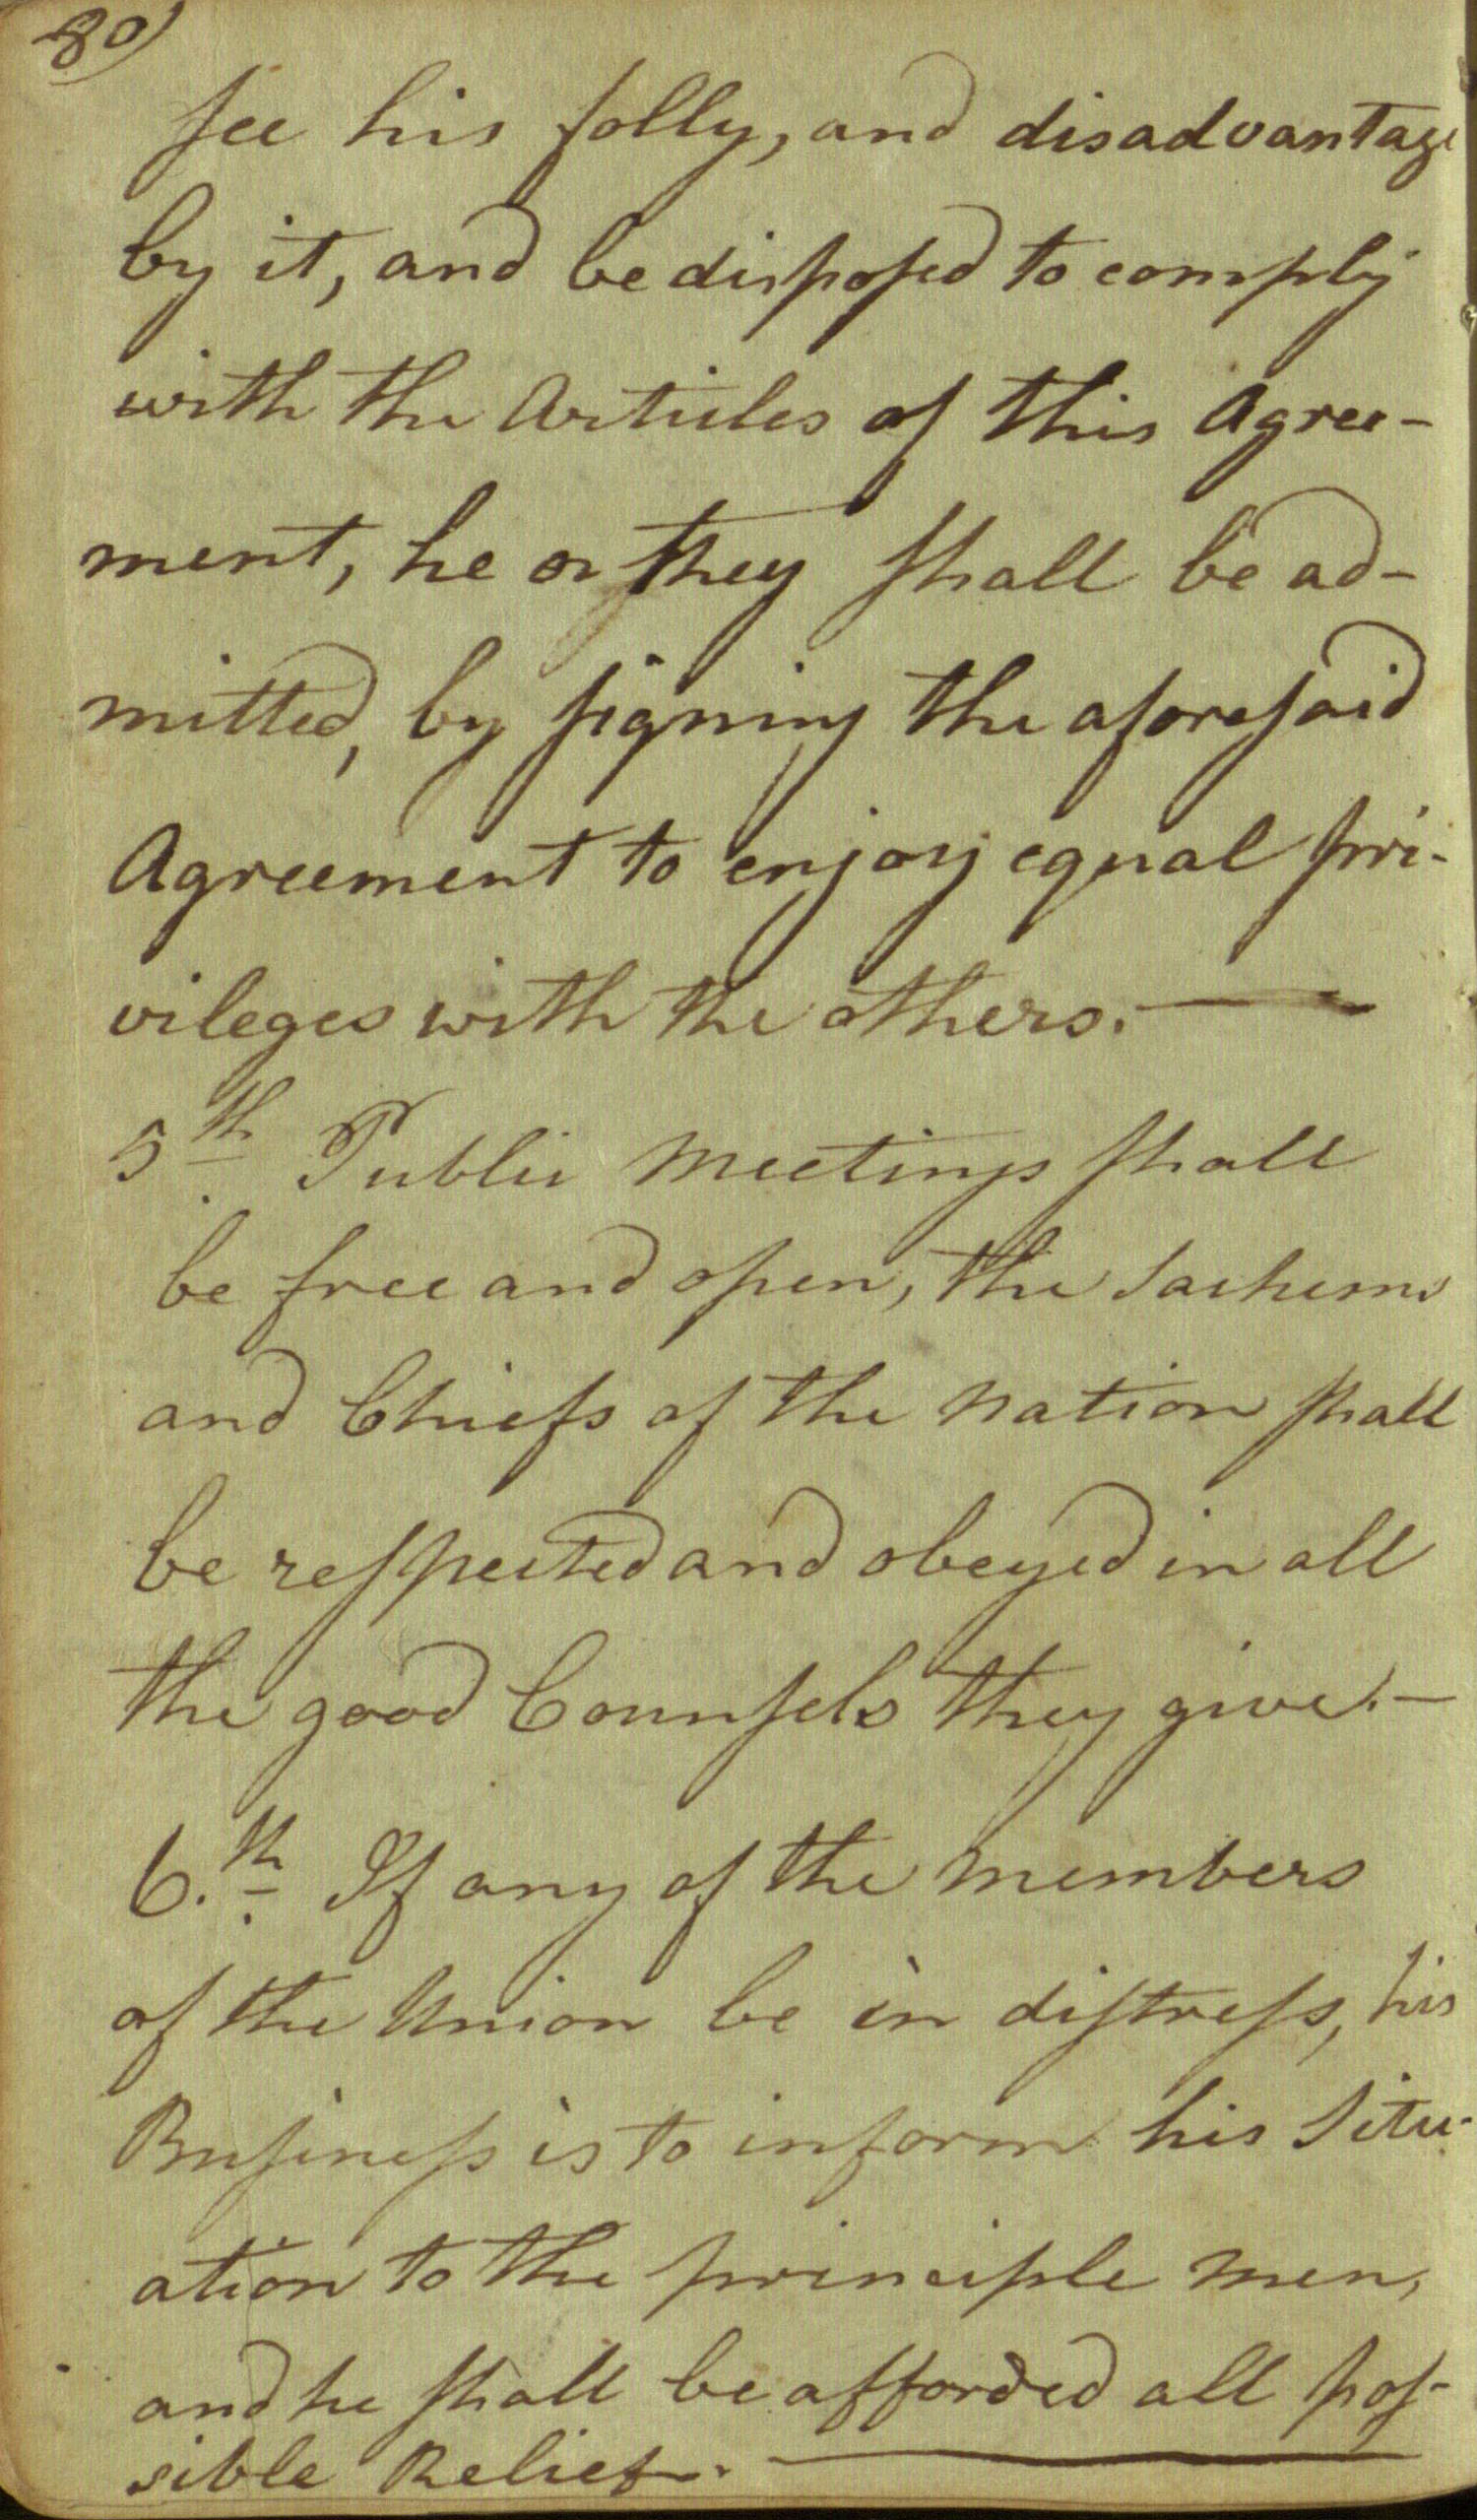 80)
see his folly, and disadvantage
by it, and be disposed to comply
with the Articles of this Agree-
ment, he or they shall be ad-
mitted, by signing the aforesaid
Agreement to enjoy equal pri-
vileges with the others. —
5th Public Meetings shall
be free and open, the Sachems
and Chiefs of the Nation shall
be respected and obeyed in all
the good Counsels they give. —
6.th If any of the Members
of the Union be in distress, his
Business is to inform his Situ-
ation to the principle men,
and he shall be afforded all pos-
sible Relief. —